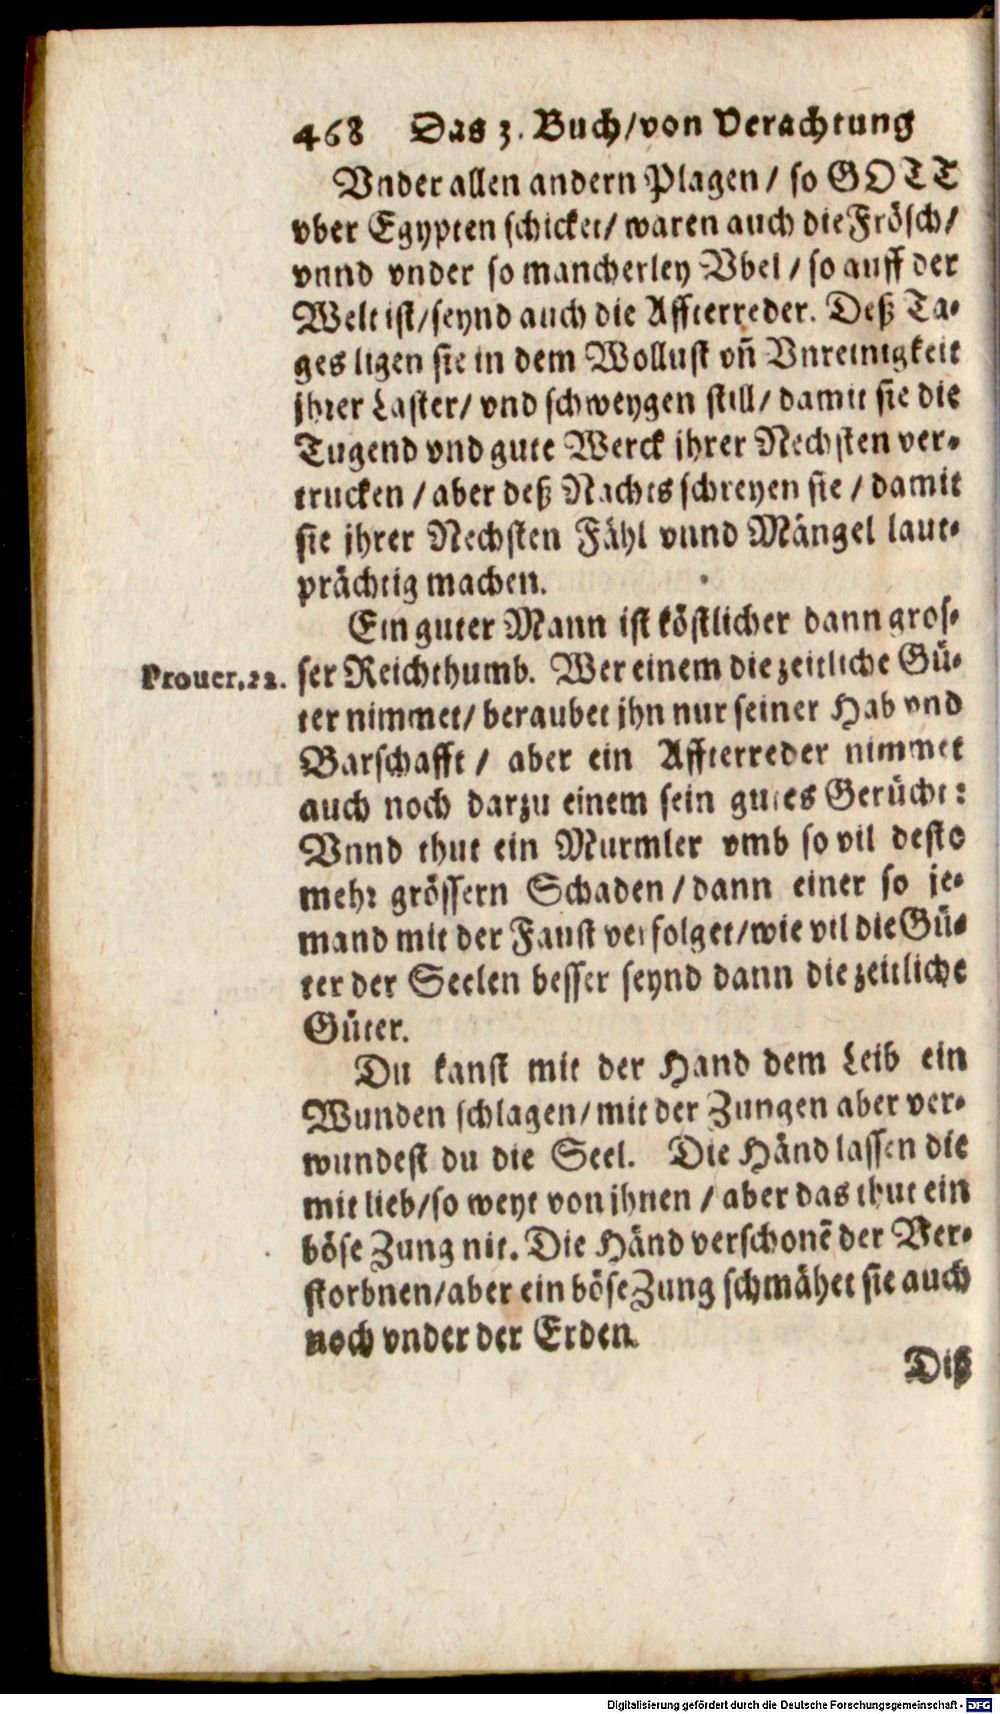 468 Das 3. Buch/von Verachtung
Vnder allen andern Plagen / so GOTT
vber Egypten schicket/ waren auch die Frösch/
vnnd vnder so mancherley Vbel / so auff der
Welt ist/seynd auch die Affterreder. Deß Ta-
ges ligen sie in dem Wollust vñ Vnreinigkeit
jhrer Laster/ vnd schweygen still/ damit sie die
Tugend vnd gute Werck jhrer Nechsten ver-
trucken / aber deß Nachts schreyen sie / damit
sie jhrer Nechsten Fähl vnnd Mängel laut-
prächtig machen.
Ein guter Mann ist köstlicher dann gros-
Prouer. 22. ser Reichthumb. Wer einem die zeitliche Gü-
ter nimmet/ beraubet jhn nur seiner Hab vnd
Barschafft / aber ein Affterreder nimmet
auch noch darzu einem sein gutes Gerücht:
Vnnd thut ein Murmler vmb so vil desto
mehr grössern Schaden / dann einer so je-
mand mit der Faust verfolget/wie vil die Gü-
ter der Seelen besser seynd dann die zeitliche
Güter.
Du kanst mit der Hand dem Leib ein
Wunden schlagen/mit der Zungen aber ver-
wundest du die Seel. Die Händ lassen die
mit lieb/so weyt von jhnen / aber das thut ein
böse Zung nit. Die Händ verschonẽ der Ver-
storbnen/aber ein böse Zung schmähet sie auch
noch vnder der Erden.
Diß
Digitalisierung gefördert durch die Deutsche Forschungsgemeinschaft - DFG